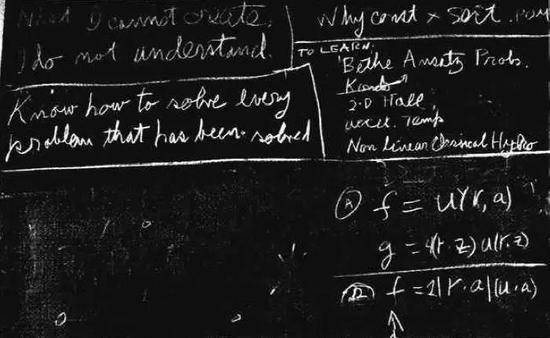 What I cannot create,
I do not understand.
Know how to solve every
problem that has been solved
Why const × sort. pow
TO LEARN:
Bethe Ansatz Probs.
Kondo
2-D Hall
accel. Temp
Non Linear Classical Hydro
Ⓐ f = u(r, a)
g = 4(r·z) u(r·z)
f = 2|r·a|(u·a)